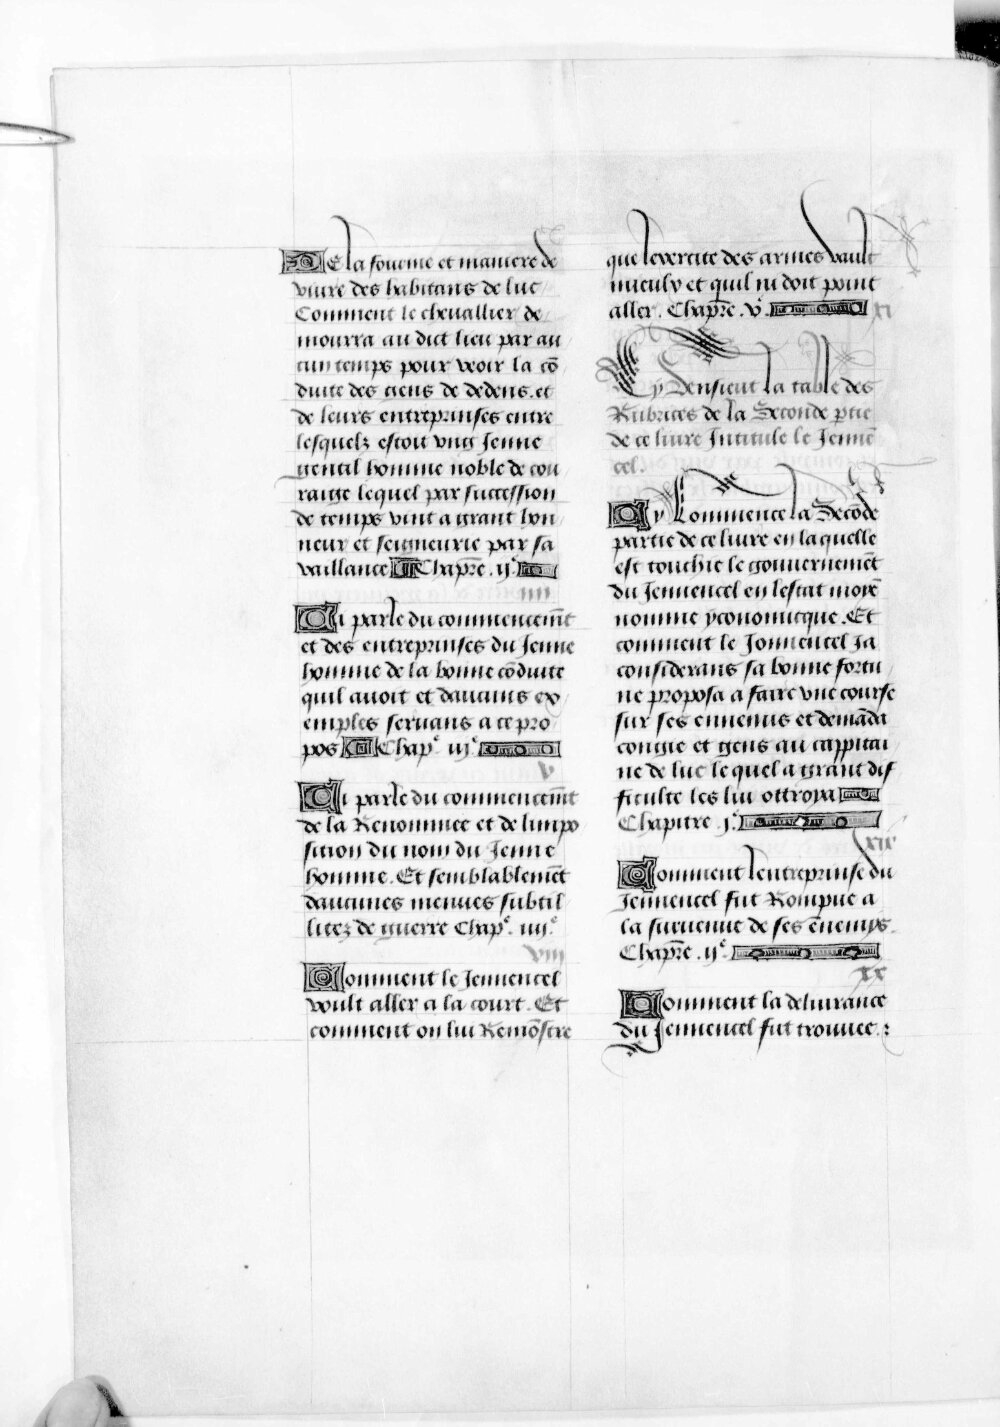 De la fourme et maniere de
viure des habitans de luc
Comment le cheuallier de
mourra au dict lieu par au
cun temps pour veoir la cō
duite des gens de dedens. et
de leurs entreprinses entre
lesquelz estoit vng Jenne
gentil homme noble de cou
raige lequel par succession
de temps vint a grant hon
neur et seigneurie par sa
vaillance Chapr̄e .ij.ͤ
iiii
Ci parle du commencem̄t
et des entreprinses du Jenne
homme de la bonne cōduite
quil auoit et daucuns ex
emples seruans a ce pro
pos Chap.ͤ iij.ͤ
v
Ci parle du commencem̄t
de la Renommee et de limpo
sition du nom du Jenne
homme. Et semblablemēt
daucunes menues subtil
litez de guerre Chap.ͤ iiij.ͤ
viii
Comment le Jennencel
voult aller a la court. Et
comment on lui Remōstre
que levertite des armes vault
mieulx et quil ni doit point
aller. Chapr̄e. v.ͤ
xi
Cy Sensieut la table des
Rubrices de la Seconde p̄tie
de ce liure Intitule le Jennē
cel.
Cy Commence la Secōde
partie de ce liure en laquelle
est touchie le gouuernemēt
du Jennencel en lestat moyē
nomme yconomicque. Et
comment le Jonnencel Ja
considerans sa bonne fortu
ne proposa a faire vne course
sur ses ennemis et demāda
congie et gens au cappitai
ne de luc le quel a grant dif
ficulte les lui ottroya
Chapitre .j.ͤ
xix
Comment lentreprinse du
Jennencel fut Rompue a
la suruenue de ses ēnemys.
Chapr̄e .ij.ͤ
xx
Comment la deliurance
du Jennencel fut trouuee.: